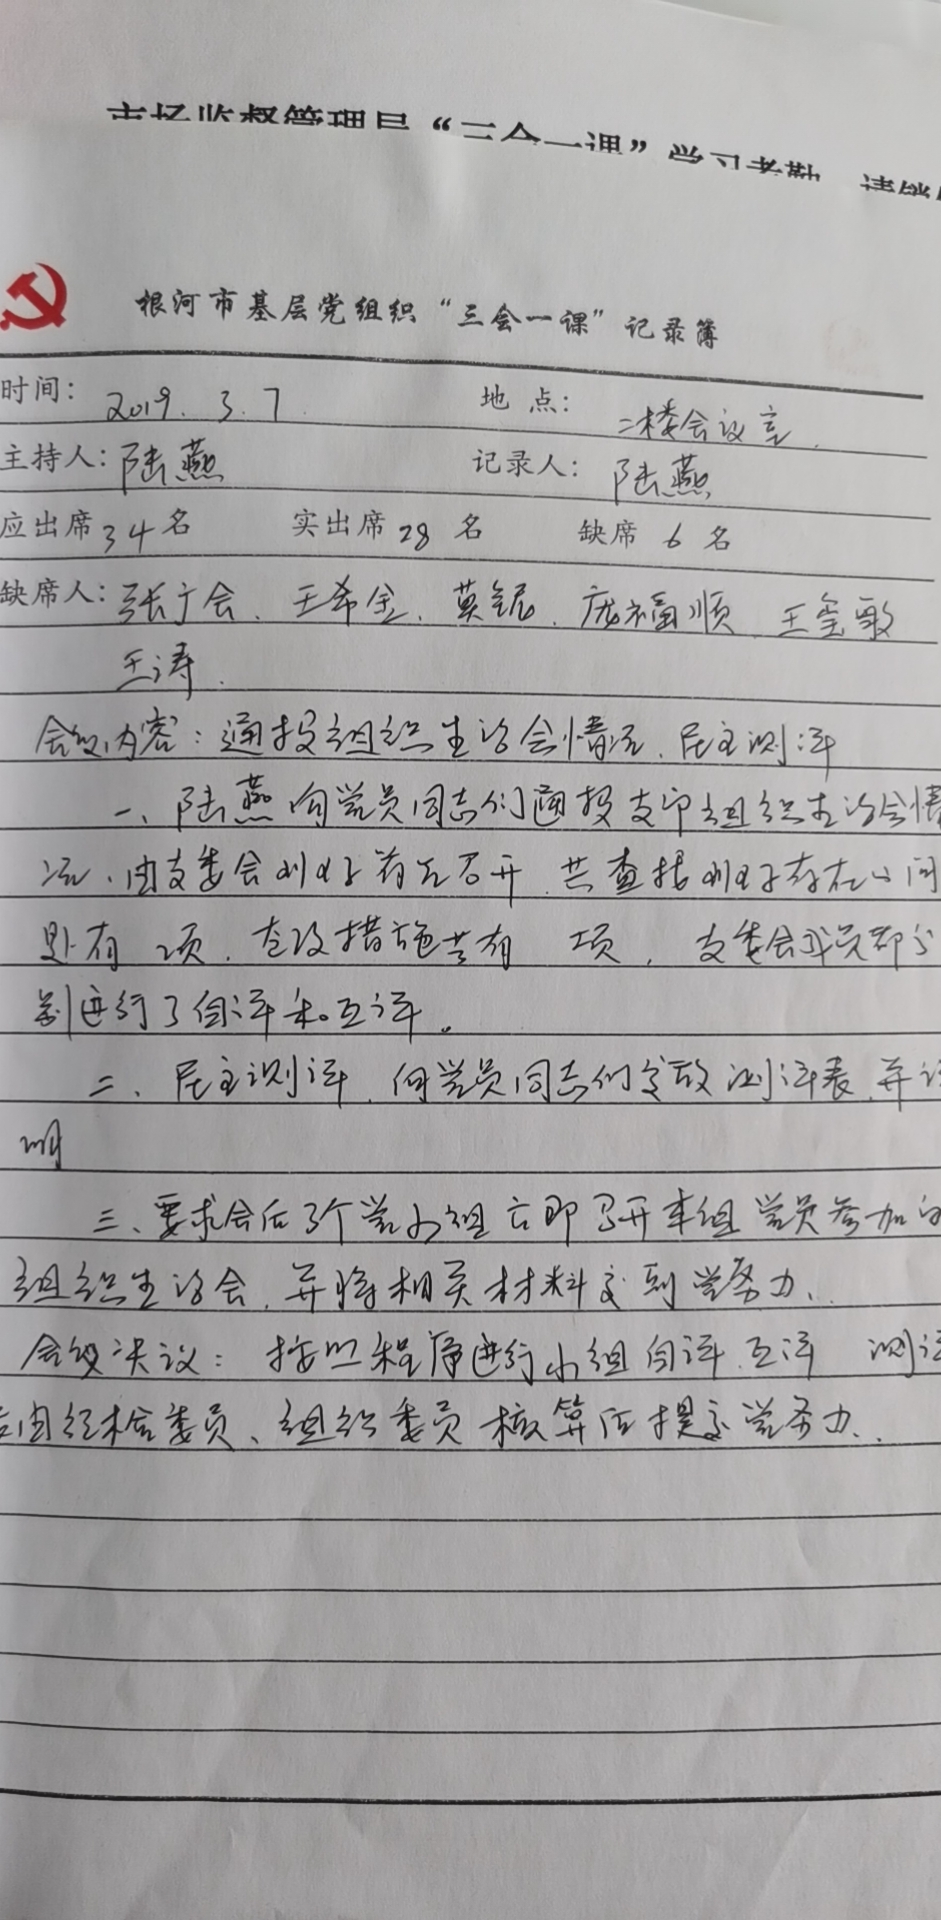 市场监督管理局“三会一课”学习考勤、请销
根河市基层党组织“三会一课”记录簿
时间: 2019.3.7. 地点: 二楼会议室.
主持人: 陆燕 记录人: 陆燕
应出席34名 实出席28名 缺席6名
缺席人: 张广会、王希金、莫铌、庞福顺、王玺敏
王涛.
会议内容: 通报组织生活会情况、民主测评
一、陆燕向党员同志们通报支部组织生活会情
况、由支委会 召开 共查摆 存在 问
有 项, 改措施共有 项, 支委会成员都分
别进行了自评和互评。
二、民主测评, 向党员同志们发放测评表, 并
明
三、要求会后3个党小组立即召开本组党员参加的
组织生活会, 并将相关材料交到党务办.
会议决议: 按照程序进行小组自评、互评 测评
由纪检委员、组织委员核算后提交党务办.